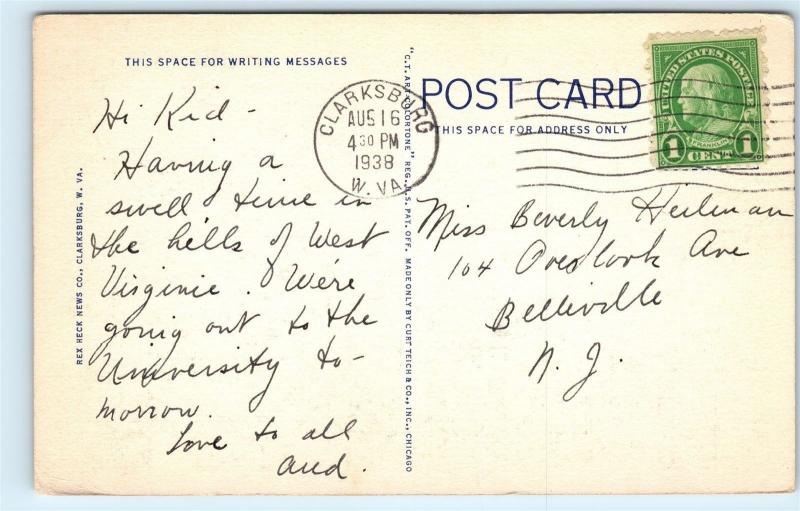 THIS SPACE FOR WRITING MESSAGES
Hi Kid -
Having a
swell time in
the hills of West
Virginia. We're
going out to the
University to-
morrow.
Love to all
REX HECK NEWS CO., CLARKSBURG, W. VA.
"C.T. ART-COLORTONE" REG. U.S. PAT. OFF. MADE ONLY BY CURT TEICH & CO., INC., CHICAGO
CLARKSBURG
AUG 16
4 30 PM
1938
W. VA.
POST CARD
THIS SPACE FOR ADDRESS ONLY
UNITED STATES POSTAGE
FRANKLIN
1 CENT 1
Miss Beverly Heilman
104 Overlook Ave
Belleville
N. J.